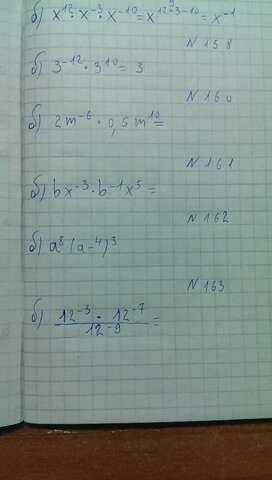 б) x¹²·x⁻³·x⁻¹⁰=x¹²⁻³⁻¹⁰=x⁻¹
N 158
б) 3⁻¹²·3¹⁰=3
N 160
б) 2m⁻⁶·0,5m¹⁰=
N 161
б) bx⁻³·b⁻¹x⁵=
N 162
б) a⁸(a⁻⁴)³
N 163
б) 12⁻³·12⁻⁷/12⁻⁹=